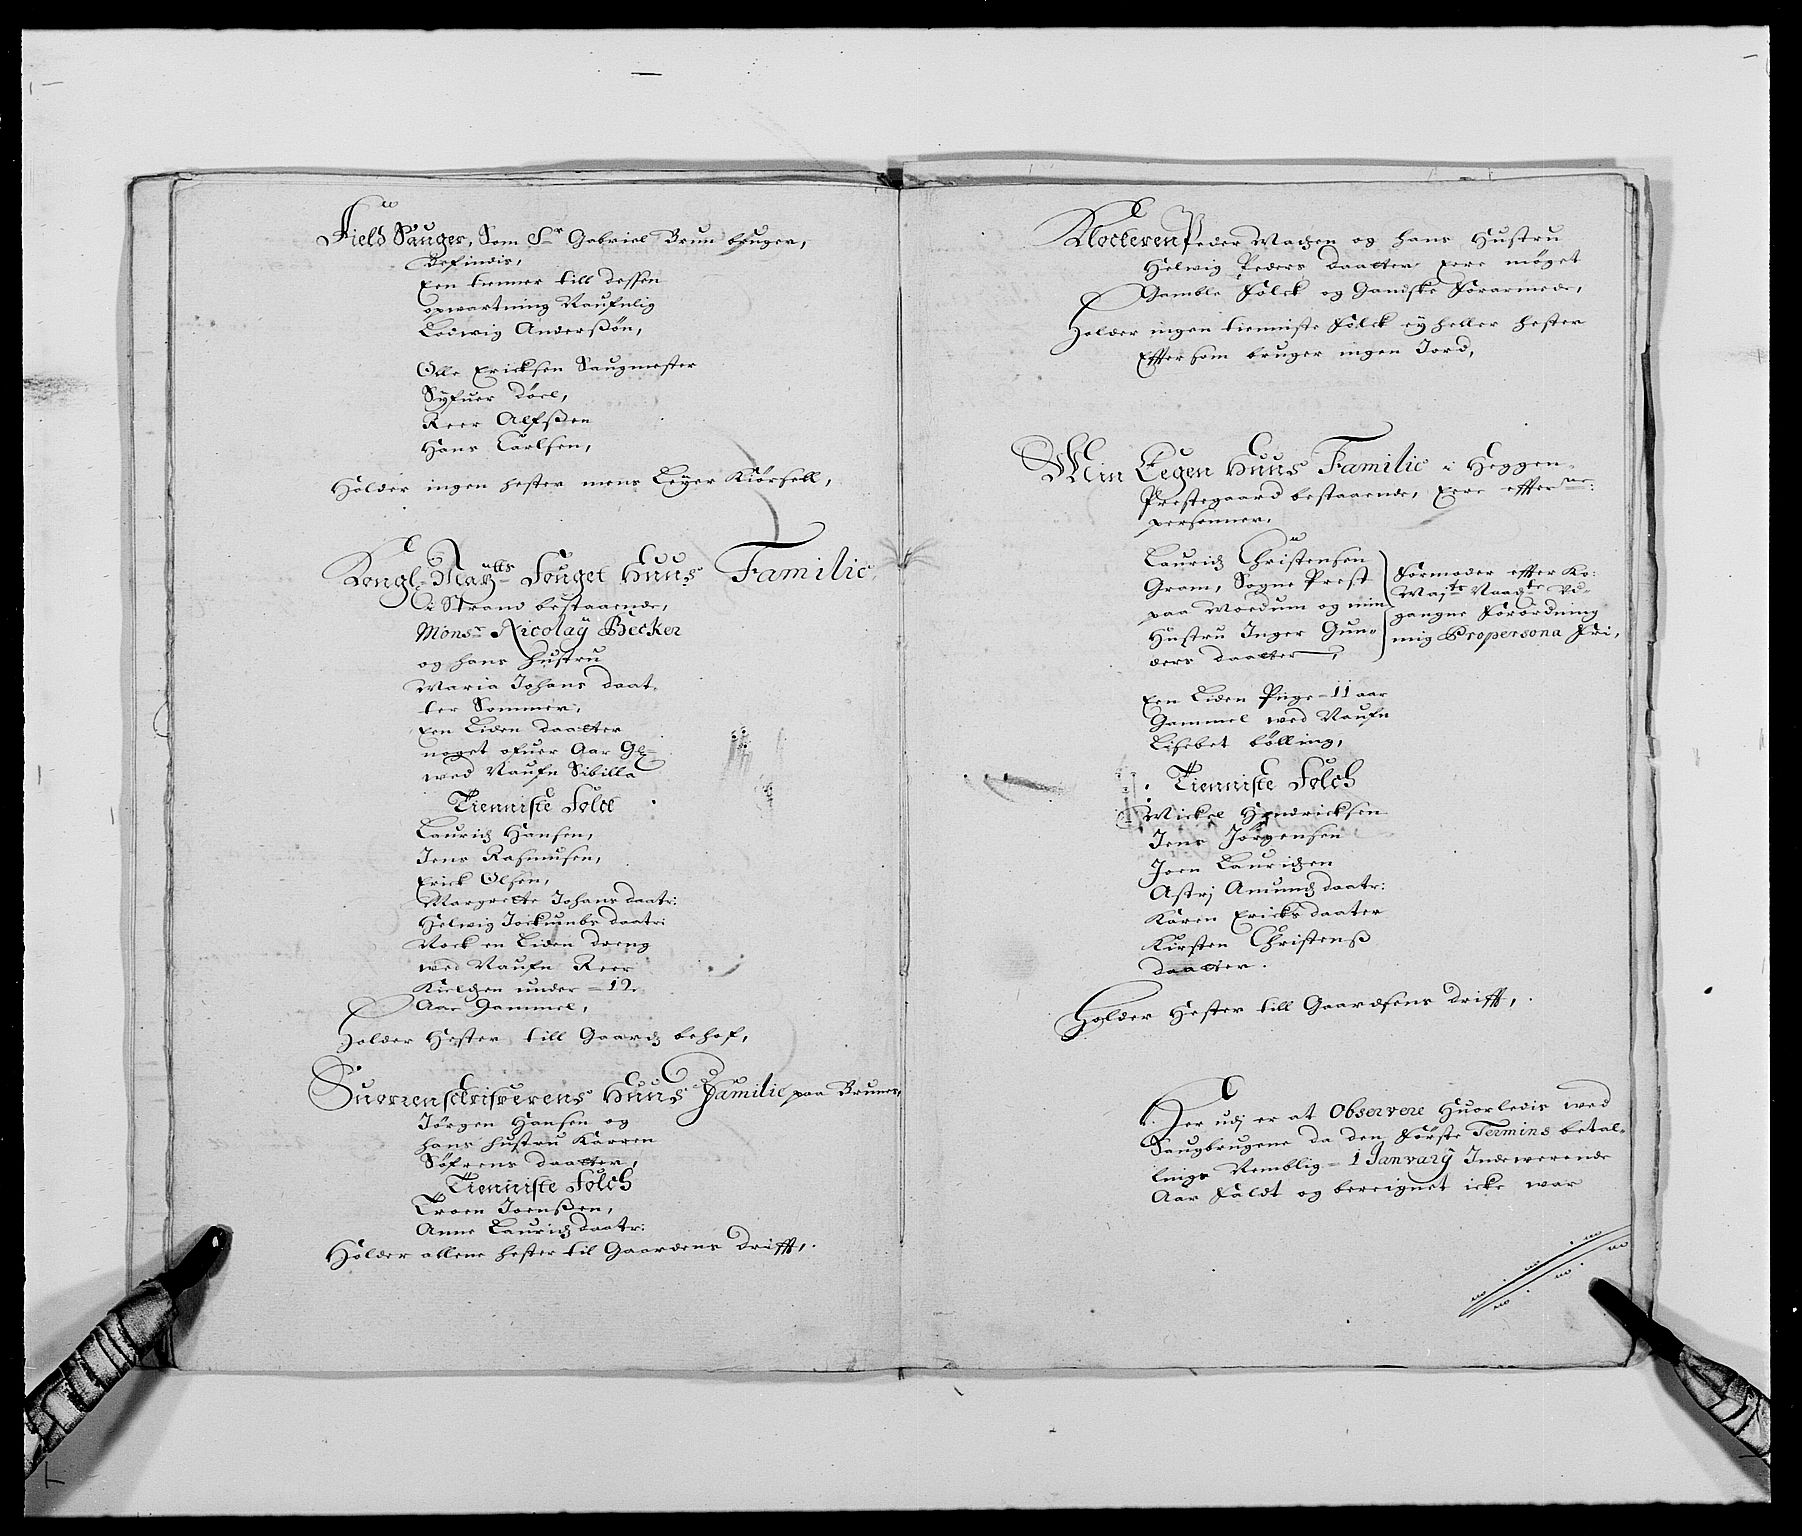 Field Sauger, Som Sr Gabriel Brun bruger,
Befindis,
Een tienner till dessen
opwartning Naufnlig
Lodwig Anderßøn,
Olle Ericksen Saugmester
Syfuer Döel,
Peer Olfßen
Hans Carlsen,
Holder ingen hester mens Leyer Kiörsell,
Kongl: Maytts Fouget Huus Familie
i Strand bestaaende,
Monsr Nicolaÿ Becker
og hans hustru
Maria Johans daat-
ter Sommer,
Een Liden daatter
noget ofuer Aar Gl
wed Naufn Sibilla
Tienniste Folck
Lauridz Hansen,
Jens Rasmusen,
Erick Olsen,
Margrette Johans daatr:
Helwig Jockumbs daatr:
Nock en Liden dreng
wed Naufn Peer
Kieldzen under - 12.
Aar Gammel,
Holder Hester till Gaardz behof,
Suorenskrifuerens Huus Familie paa Bruner,
Jörgen Hansen og
hans hustru Karren
Söfrens daatter,
Tienniste Folck
Troen Joenßen,
Anne Lauridz daatr:
Holder allene hester til Gaardens drifft,
Klockeren Peder Madzen og hans Hustru
Helwig Peders daatter ere möget
Gamble Folck og Gandske Forarmede,
Holder ingen tienniste Folck eÿ heller hester
Effter som bruger ingen Jord,
Min Eegen Huus Familie i Heggen
Prestegaard bestaaende, Ere effter ne:
personner,
Lauridz Christensen
Gram, Sogne Prest
paa Modum og min
Hustru Inger Gun-
ders daatter,
Formoder effter Ko:
Mayts Naadte Vd-
gangne Forordning
mig Propersona Fri,
Een Liden Piige - 11 aar
Gammel wed Naufn
Lisebet bölling,
Tienniste Folch
Mickel Hendricksen
Jens Jörgensen
Joen Lauridzen
Astrj Amundz daatr:
Karen Ericks daater
Kirsten Christenß
daatter.
Holder Hester till Gaardsens drifft,
Her udj er at Observere Huorledis wed
Saugbrugene da den Förste Termins betal-
lings Nemblig - 1 Januarÿ Indewerende
Aar faldt og beregnet icke war